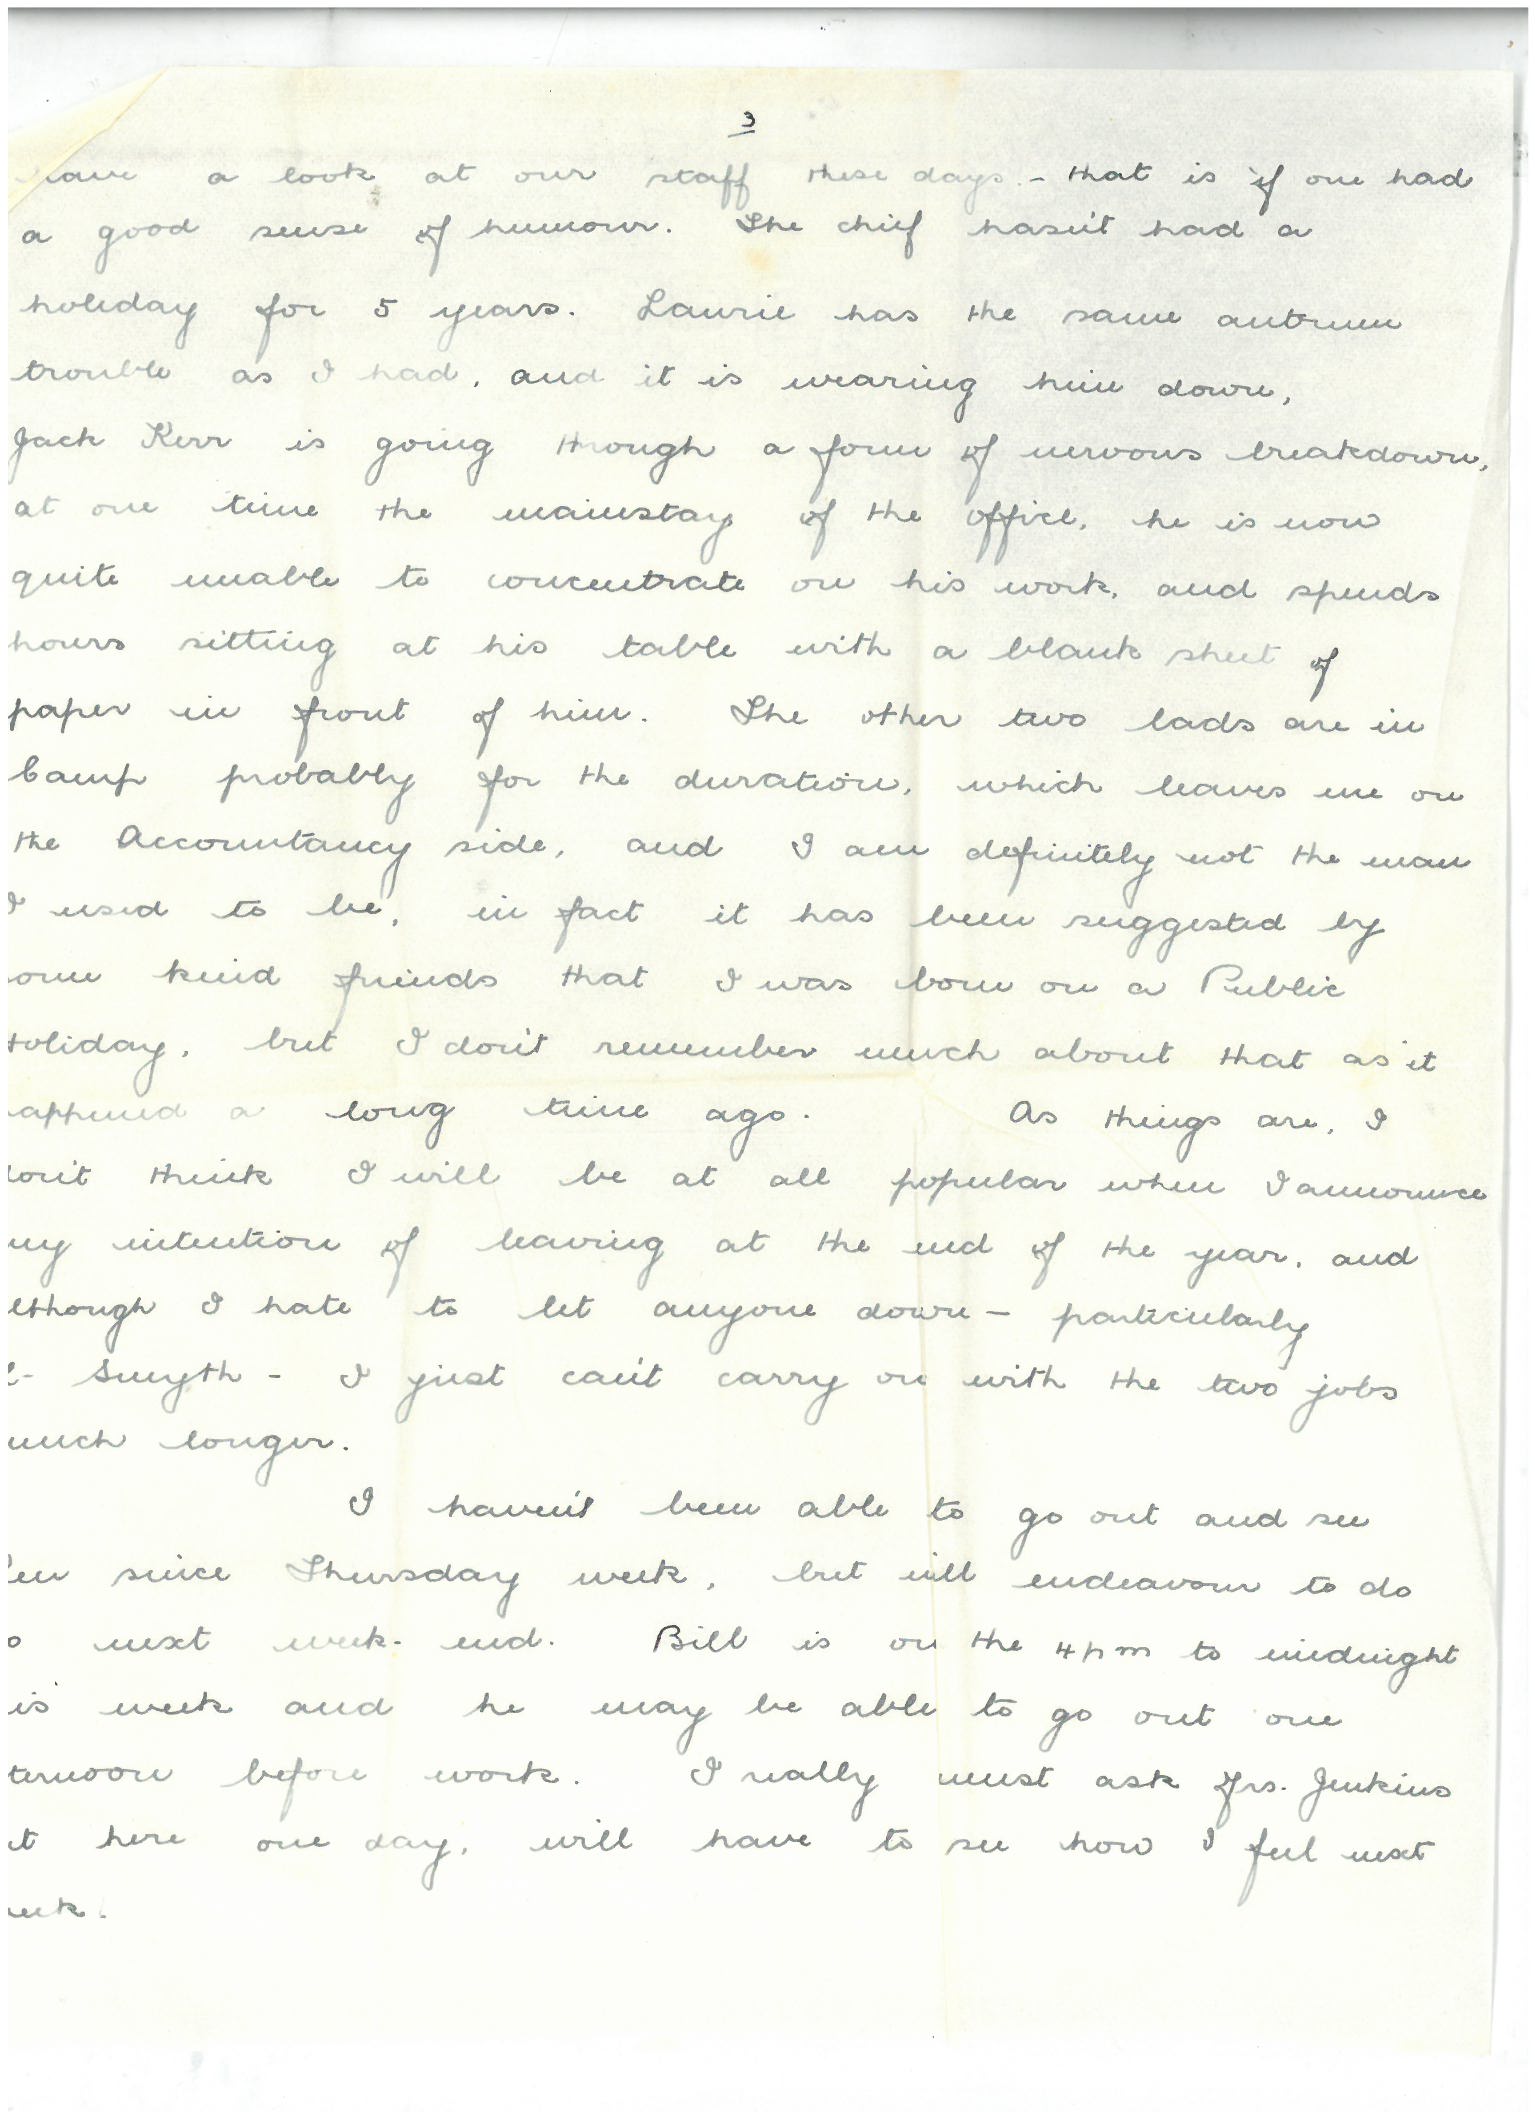 3
have a look at our staff these days - that is if one had
a good sense of humour. The chief hasn't had a
holiday for 5 years. Laurie has the same antrum
trouble as I had, and it is wearing him down,
Jack Kerr is going through a form of nervous breakdown,
at one time the mainstay of the office, he is now
quite unable to concentrate on his work, and spends
hours sitting at his table with a blank sheet of
paper in front of him. The other two lads are in
Camp probably for the duration, which leaves me on
the Accountancy side, and I am definitely not the man
I used to be, in fact it has been suggested by
ome kind friends that I was born on a Public
Holiday, but I don't remember much about that as it
appened a long time ago. As things are, I
don't think I will be at all popular when I announce
my intention of leaving at the end of the year, and
lthough I hate to let anyone down - particularly
- Smyth - I just can't carry on with the two jobs
much longer.
I haven't been able to go out and see
en since Thursday week, but will endeavour to do
o next week-end. Bill is on the 4pm to midnight
is week and he may be able to go out one
ternoon before work. I really must ask Mrs. Jenkins
t here one day, will have to see how I feel next
eek.